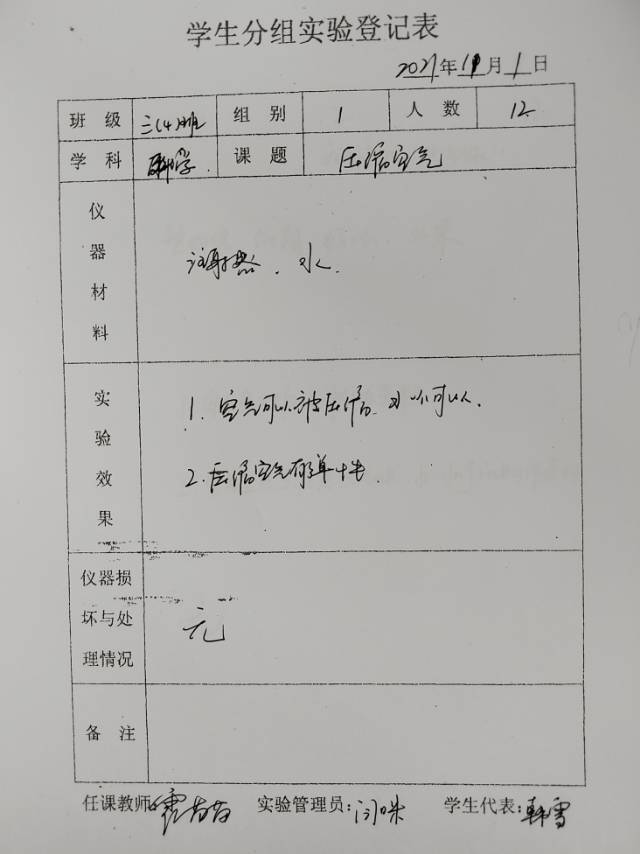 学生分组实验登记表
2021年11月1日
班级 三(4)班 组别 1 人数 12
学科 科学 课题 压缩空气
仪器材料 注射器、水
实验效果 1. 空气可以被压缩、水不可以.
2. 压缩空气有弹性
仪器损坏与处理情况 无
备注
任课教师: 实验管理员: 学生代表:韩雪